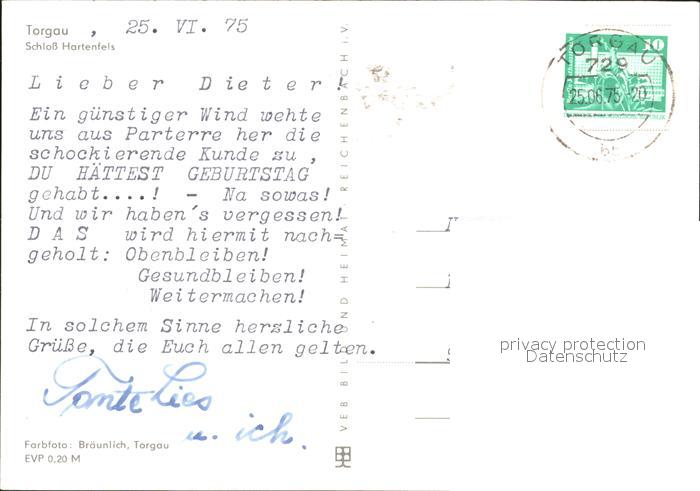 Torgau , 25. VI. 75
Schloß Hartenfels
Lieber Dieter!
Ein günstiger Wind wehte
uns aus Parterre her die
schockierende Kunde zu ,
DU HÄTTEST GEBURTSTAG
gehabt....! - Na sowas!
Und wir haben´s vergessen!
D A S wird hiermit nach=
geholt: Obenbleiben!
Gesundbleiben!
Weitermachen!
In solchem Sinne herzliche
Grüße, die Euch allen gelten.
Tante Lies
u. ich.
Farbfoto: Bräunlich, Torgau
EVP 0,20 M
VEB BILD UND HEIMAT REICHENBACH i.V.
TORGAU
729
25.06.75-20
10
privacy protection
Datenschutz